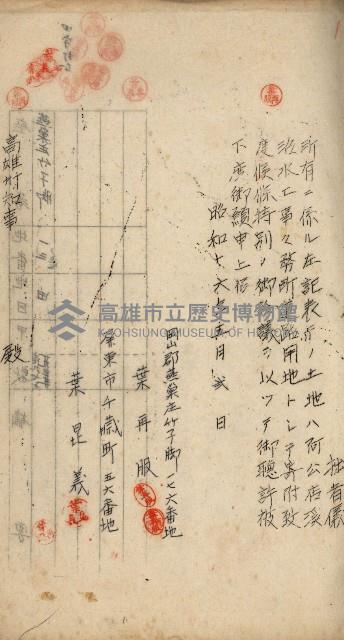 拙者儀
所有ニ係ル左記表示ノ土地ハ阿公店溪
治水工事々務所道路用地トシテ寄附致
度候條特別ノ御詮議ヲ以ッテ御聽許被
下度御願申上候
昭和十六年五月貳日
岡山郡燕巢庄竹子脚七六番地
葉再服
屏東市千歲町五六番地
葉昆義
高雄州知事 殿
高雄市立歷史博物館
KAOHSIUNG MUSEUM OF HISTORY